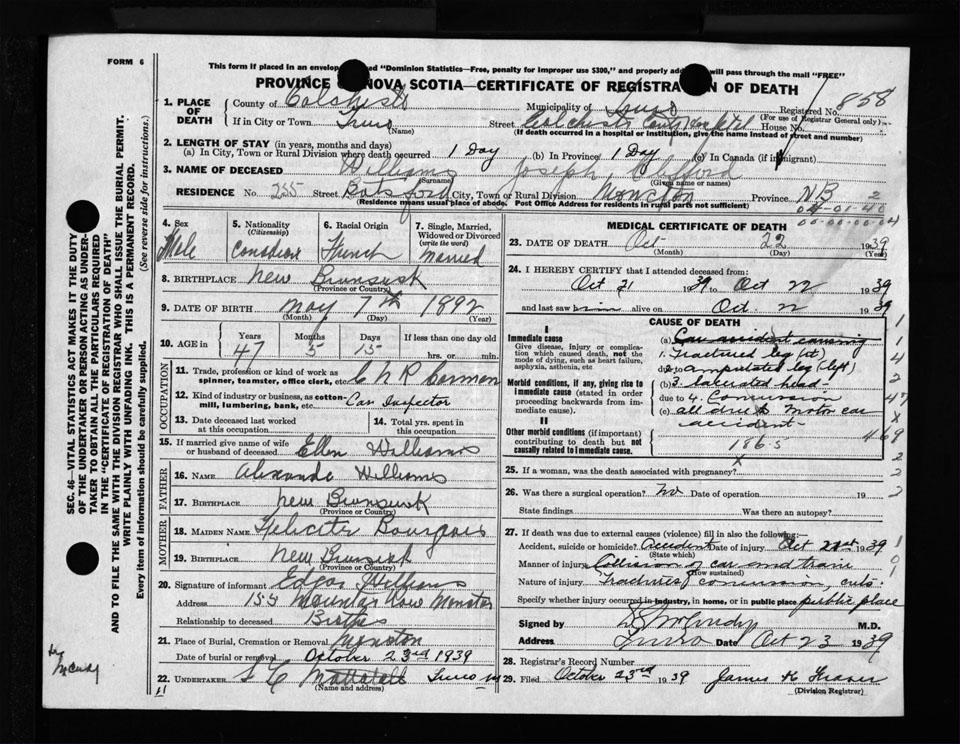 FORM 6
This form if placed in an envelop ed "Dominion Statistics—Free, penalty for improper use $300," and properly add will pass through the mail "FREE"
PROVINCE NOVA SCOTIA—CERTIFICATE OF REGISTRATION OF DEATH
1. PLACE OF DEATH
County of Colchester Municipality of Truro Registered No. 858
(For use of Registrar General only)
If in City or Town Truro Street Colchester County Hospital House No.
(Name) (If death occurred in a hospital or institution, give the name instead of street and number)
2. LENGTH OF STAY (in years, months and days)
(a) In City, Town or Rural Division where death occurred 1 Day (b) In Province 1 Day (c) In Canada (if immigrant)
3. NAME OF DECEASED Williams Joseph,
(Surname) (Given name or names)
RESIDENCE No. 255 Street Botsford City, Town or Rural Division Moncton Province NB 2
(Residence means usual place of abode. Post Office Address for residents in rural parts not sufficient)
4. Sex Male
5. Nationality (Citizenship) Canadian
6. Racial Origin French
7. Single, Married, Widowed or Divorced (write the word) Married
8. BIRTHPLACE New Brunswick
(Province or Country)
9. DATE OF BIRTH May 7th 1892
(Month) (Day) (Year)
10. AGE in Years 47 Months 5 Days 15 If less than one day hrs. or min.
OCCUPATION
11. Trade, profession or kind of work as spinner, teamster, office clerk, etc. C N R Carman
12. Kind of industry or business, as cotton-mill, lumbering, bank, etc. Car Inspector
13. Date deceased last worked at this occupation
14. Total yrs. spent in this occupation
15. If married give name of wife or husband of deceased Ellen Williams
FATHER
16. NAME Williams
17. BIRTHPLACE New Brunswick
(Province or Country)
MOTHER
18. MAIDEN NAME Bourgois
19. BIRTHPLACE New Brunswick
(Province or Country)
20. Signature of informant Edgar Williams
Address 155 Mountain Moncton
Relationship to deceased Brother
21. Place of Burial, Cremation or Removal Moncton
Date of burial or removal October 23rd 1939
22. UNDERTAKER Mattatall Truro
(Name and address)
MEDICAL CERTIFICATE OF DEATH
23. DATE OF DEATH Oct 22 1939
(Month) (Day) (Year)
24. I HEREBY CERTIFY that I attended deceased from:
Oct 21 1939 to Oct 22 1939
and last saw him alive on Oct 22 1939
CAUSE OF DEATH
I
Immediate cause
Give disease, injury or complication which caused death, not the mode of dying, such as heart failure, asphyxia, asthenia, etc
(a) Car accident causing
1. Fractured leg (rt)
due to 2. amputated leg (left)
Morbid conditions, if any, giving rise to immediate cause (stated in order proceeding backwards from immediate cause).
(b) 3. lacerated head
due to 4. Concussion
(c) all due to Motor car accident
II
Other morbid conditions (if important) contributing to death but not causally related to immediate cause.
1865
469
25. If a woman, was the death associated with pregnancy? x
26. Was there a surgical operation? No Date of operation 19
State findings Was there an autopsy?
27. If death was due to external causes (violence) fill in also the following:
Accident, suicide or homicide? Accident Date of injury Oct 21st 1939
(State which)
Manner of injury Collision of car and train
(How sustained)
Nature of injury Fractures, concussion, cuts.
Specify whether injury occurred in industry, in home, or in public place public place
Signed by M.D.
Address Truro Date Oct 23 1939
28. Registrar's Record Number
29. Filed October 23rd 1939 James K Fraser
(Division Registrar)
SEC. 46—VITAL STATISTICS ACT MAKES IT THE DUTY OF THE UNDERTAKER OR PERSON ACTING AS UNDERTAKER TO OBTAIN ALL THE PARTICULARS REQUIRED IN THE "CERTIFICATE OF REGISTRATION OF DEATH" AND TO FILE THE SAME WITH THE DIVISION REGISTRAR WHO SHALL ISSUE THE BURIAL PERMIT.
WRITE PLAINLY WITH UNFADING INK. THIS IS A PERMANENT RECORD.
Every item of information should be carefully supplied. (See reverse side for instructions.)